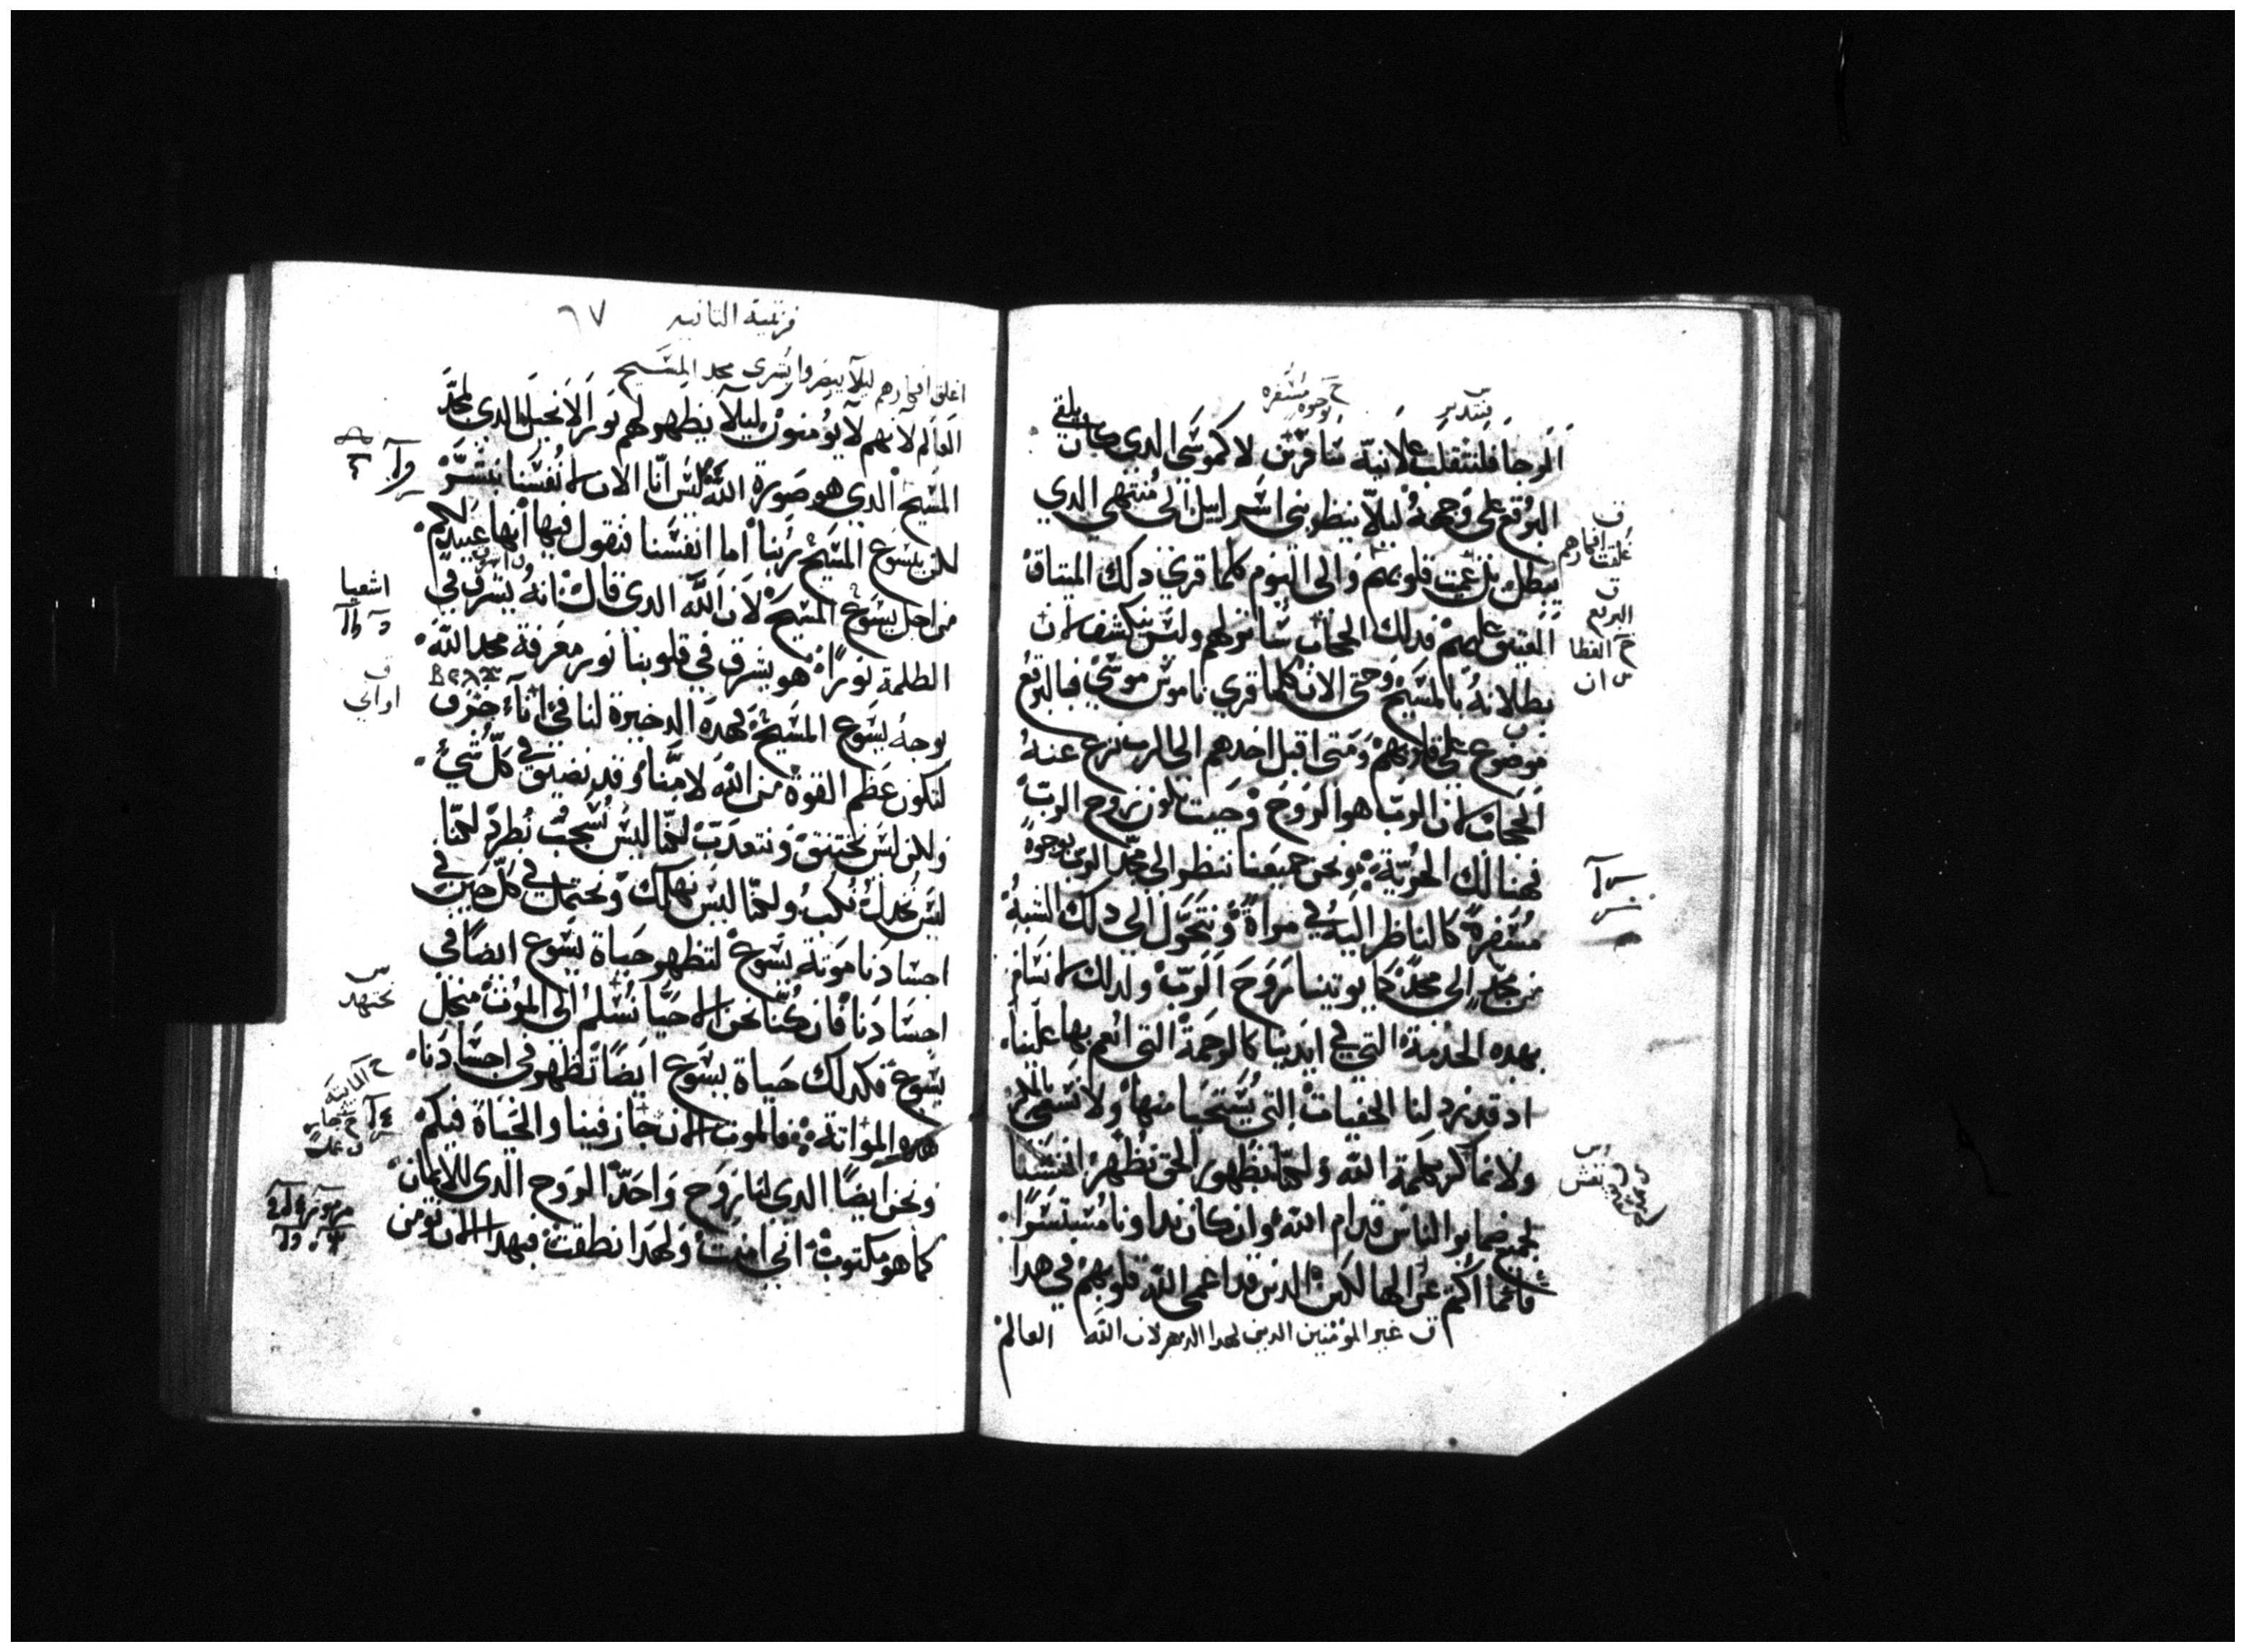 بوجوه مسفره
الرجا فلنتقلب علانية سافرين لا كموسى الدي كان يلقي
البرقع على وجهه ليلا ينظر بني اسراييل الى منتهى الدي
يبطل بل عميت قلوبهم والى اليوم كلما قري دلك الميتاق
العتيق عليهم فدلك الحجاب ساتر لهم وليس ينكشف لان
بطلانه بالمسيح وحتى الان كلما قري ناموس موسى فالبرقع
موضوع على قلوبهم ومتى اقبل احدهم الى الرب نزع عنه
الحجاب لان الرب هو الروح وحيت تكون روح الرب
فهنالك الحرية ونحن جميعنا ننظر الى مجد الرب بوجوه
مسفرة كالناظر اليه في مراة ونتحول الى دلك الشبه
من مجد الى مجد كما يوتينا روح الرب ولدلك لا نسام
بهده الخدمة التي في ايدينا كالرحمة التي انعم بها علينا
اد قد نرد لنا الخفيات التي يستحيا منها ولا نسعى بالمكر
ولا نماكر بكلمة الله ولكنا بظهور الحق نظهر انفسنا
لجميع ضماير الناس قدام الله وان كان بداونا مستترا
فانما اكتتم عن الهالكين الدين قد اعمى الله قلوبهم في هدا
ق غير المومنين الدين لهدا الدهر لان الله
العالم
ق
غلقت افكارهم
ق
البرقع
خ الغطا
س ان
س
نفس
قرنتية التانيه
٦٧
اغلق افكارهم ليلا يبصروا بشرى مجد المسيح
العالم لانهم لا يومنون ليلا يظهر لهم نور الانجيل الدي لمجد
المسيح الدي هو صورة الله ليس انا الان لانفسنا نبشر
لكن بيسوع المسيح ربنا اما انفسنا فنقول فيها انها عبيدكم
من اجل يسوع المسيح لان الله الدي قال انه يشرق في
الظلمة نورا هو يشرق في قلوبنا نور معرفة مجد الله
بوجه يسوع المسيح فهده الدخيرة لنا في اناء خزف
لتكون عظم القوة من الله لا منا وقد نضيق في كل شيء
ولكن ليس نختنق ونتعدب لكنا ليس نشجب نطرد لكنا
ليس نخدل نكب ولكنا ليس نهلك ونحتمل في كل حين في
اجسادنا موتة يسوع لتظهر حياة يسوع ايضا في
اجسادنا فان كنا نحن الاحيا نسلم الى الموت من اجل
يسوع فكدلك حياة يسوع ايضا تظهر في اجسادنا
هده المواتة فالموت الان جاز فينا والحياة فيكم
ونحن ايضا الدي لنا روح واحد الروح الدي للايمان
كما هو مكتوب اني امنت ولهدا نطقت فبهدا الان نومن
اشعيا
ق
اواني
س
نجتهد
خ المايته